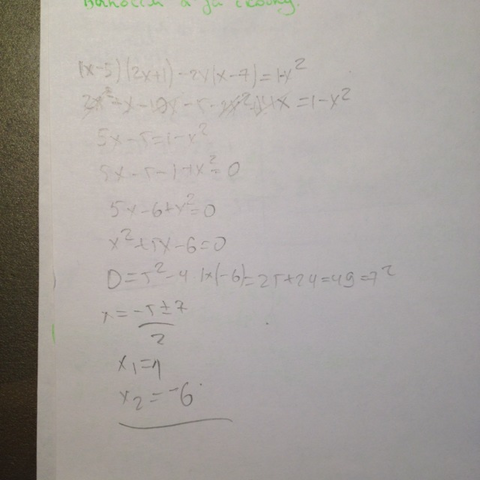 Выносим 2 за скобку.
(x-5)(2x+1)-2x(x-7)=1-x²
2x²+x-10x-5-2x²+14x=1-x²
5x-5=1-x²
5x-5-1+x²=0
5x-6+x²=0
x²+5x-6=0
D=5²-4·1×(-6)=25+24=49=7²
x=-5±7/2
x₁=1
x₂=-6